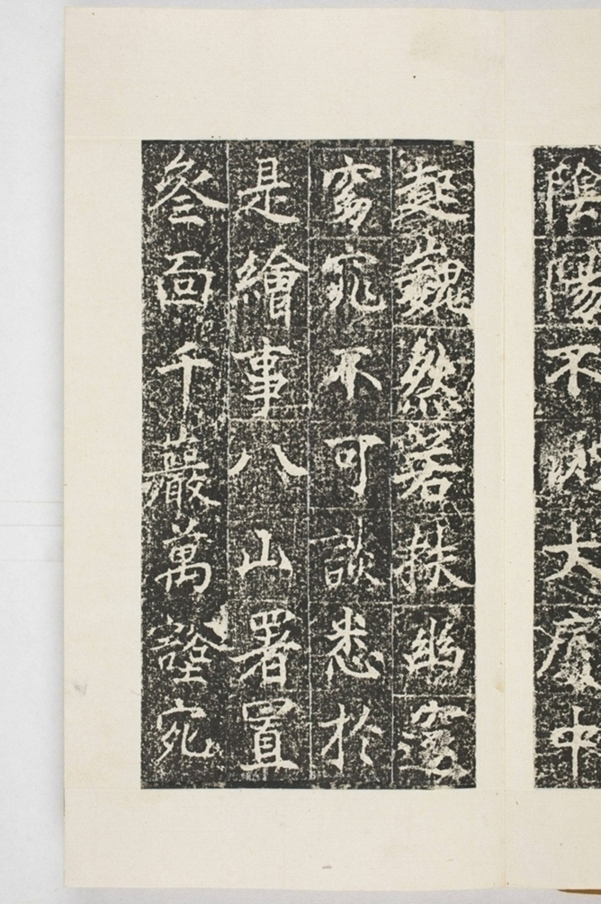 陰陽不測大廈中
起巍然若扶幽邃
窈窕不可談悉於
是繪事八山署置
叁面千巖萬壑宛